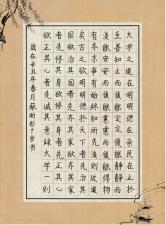 大学之道在明明德在亲民在止於
至善知止而後有定定而後能静静而
後能安安而後能慮慮而後能得物
有本末事有終始知所先後則近道
矣古之欲明明德於天下者先治其
國欲治其國者先齊其家欲齊其家
者先修其身欲修其身者先正其心
欲正其心者先誠其意錄大学一則
歲在辛丑年春月蘇昕彤十岁书